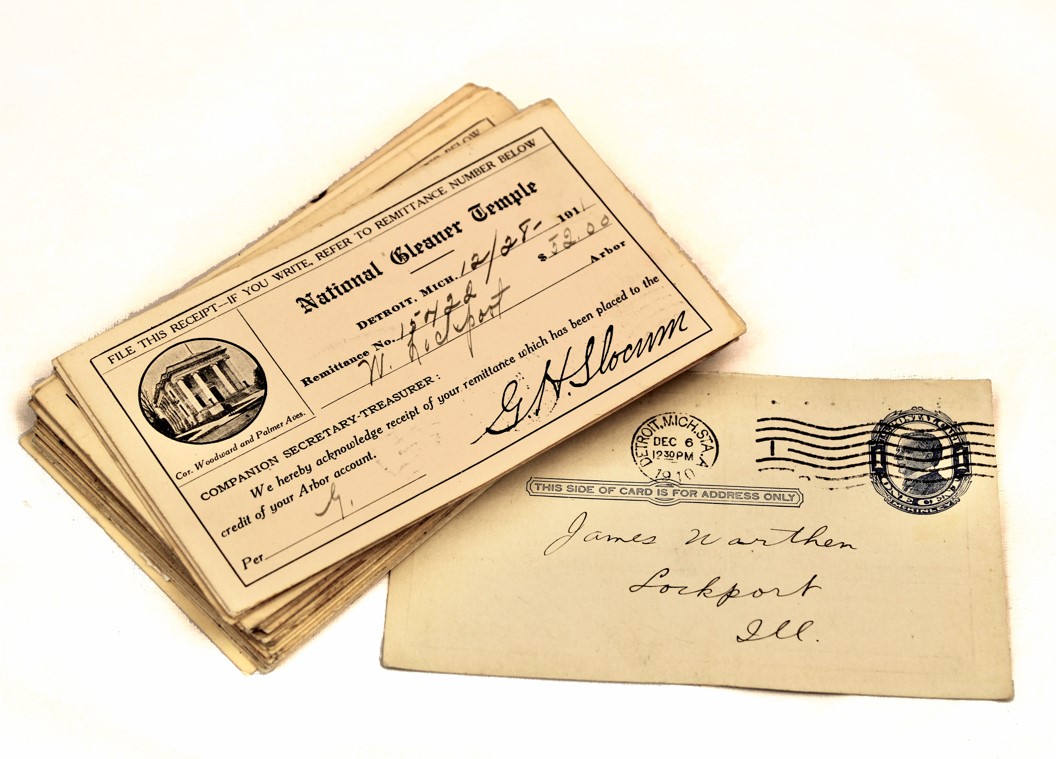 BELOW
FILE THIS RECEIPT—IF YOU WRITE, REFER TO REMITTANCE NUMBER BELOW
National Gleaner Temple
DETROIT, MICH. 12/28- 1911
Remittance No. 15422 $52.00
W. Lockport Arbor
Cor. Woodward and Palmer Aves.
COMPANION SECRETARY-TREASURER:
We hereby acknowledge receipt of your remittance which has been placed to the
credit of your Arbor account.
G. H. Slocum
Per G.
DETROIT, MICH. STA. A
DEC 6
12 30 PM
1910
1
ONE CENT
McKINLEY
THIS SIDE OF CARD IS FOR ADDRESS ONLY
James Warthen
Lockport
Ill.